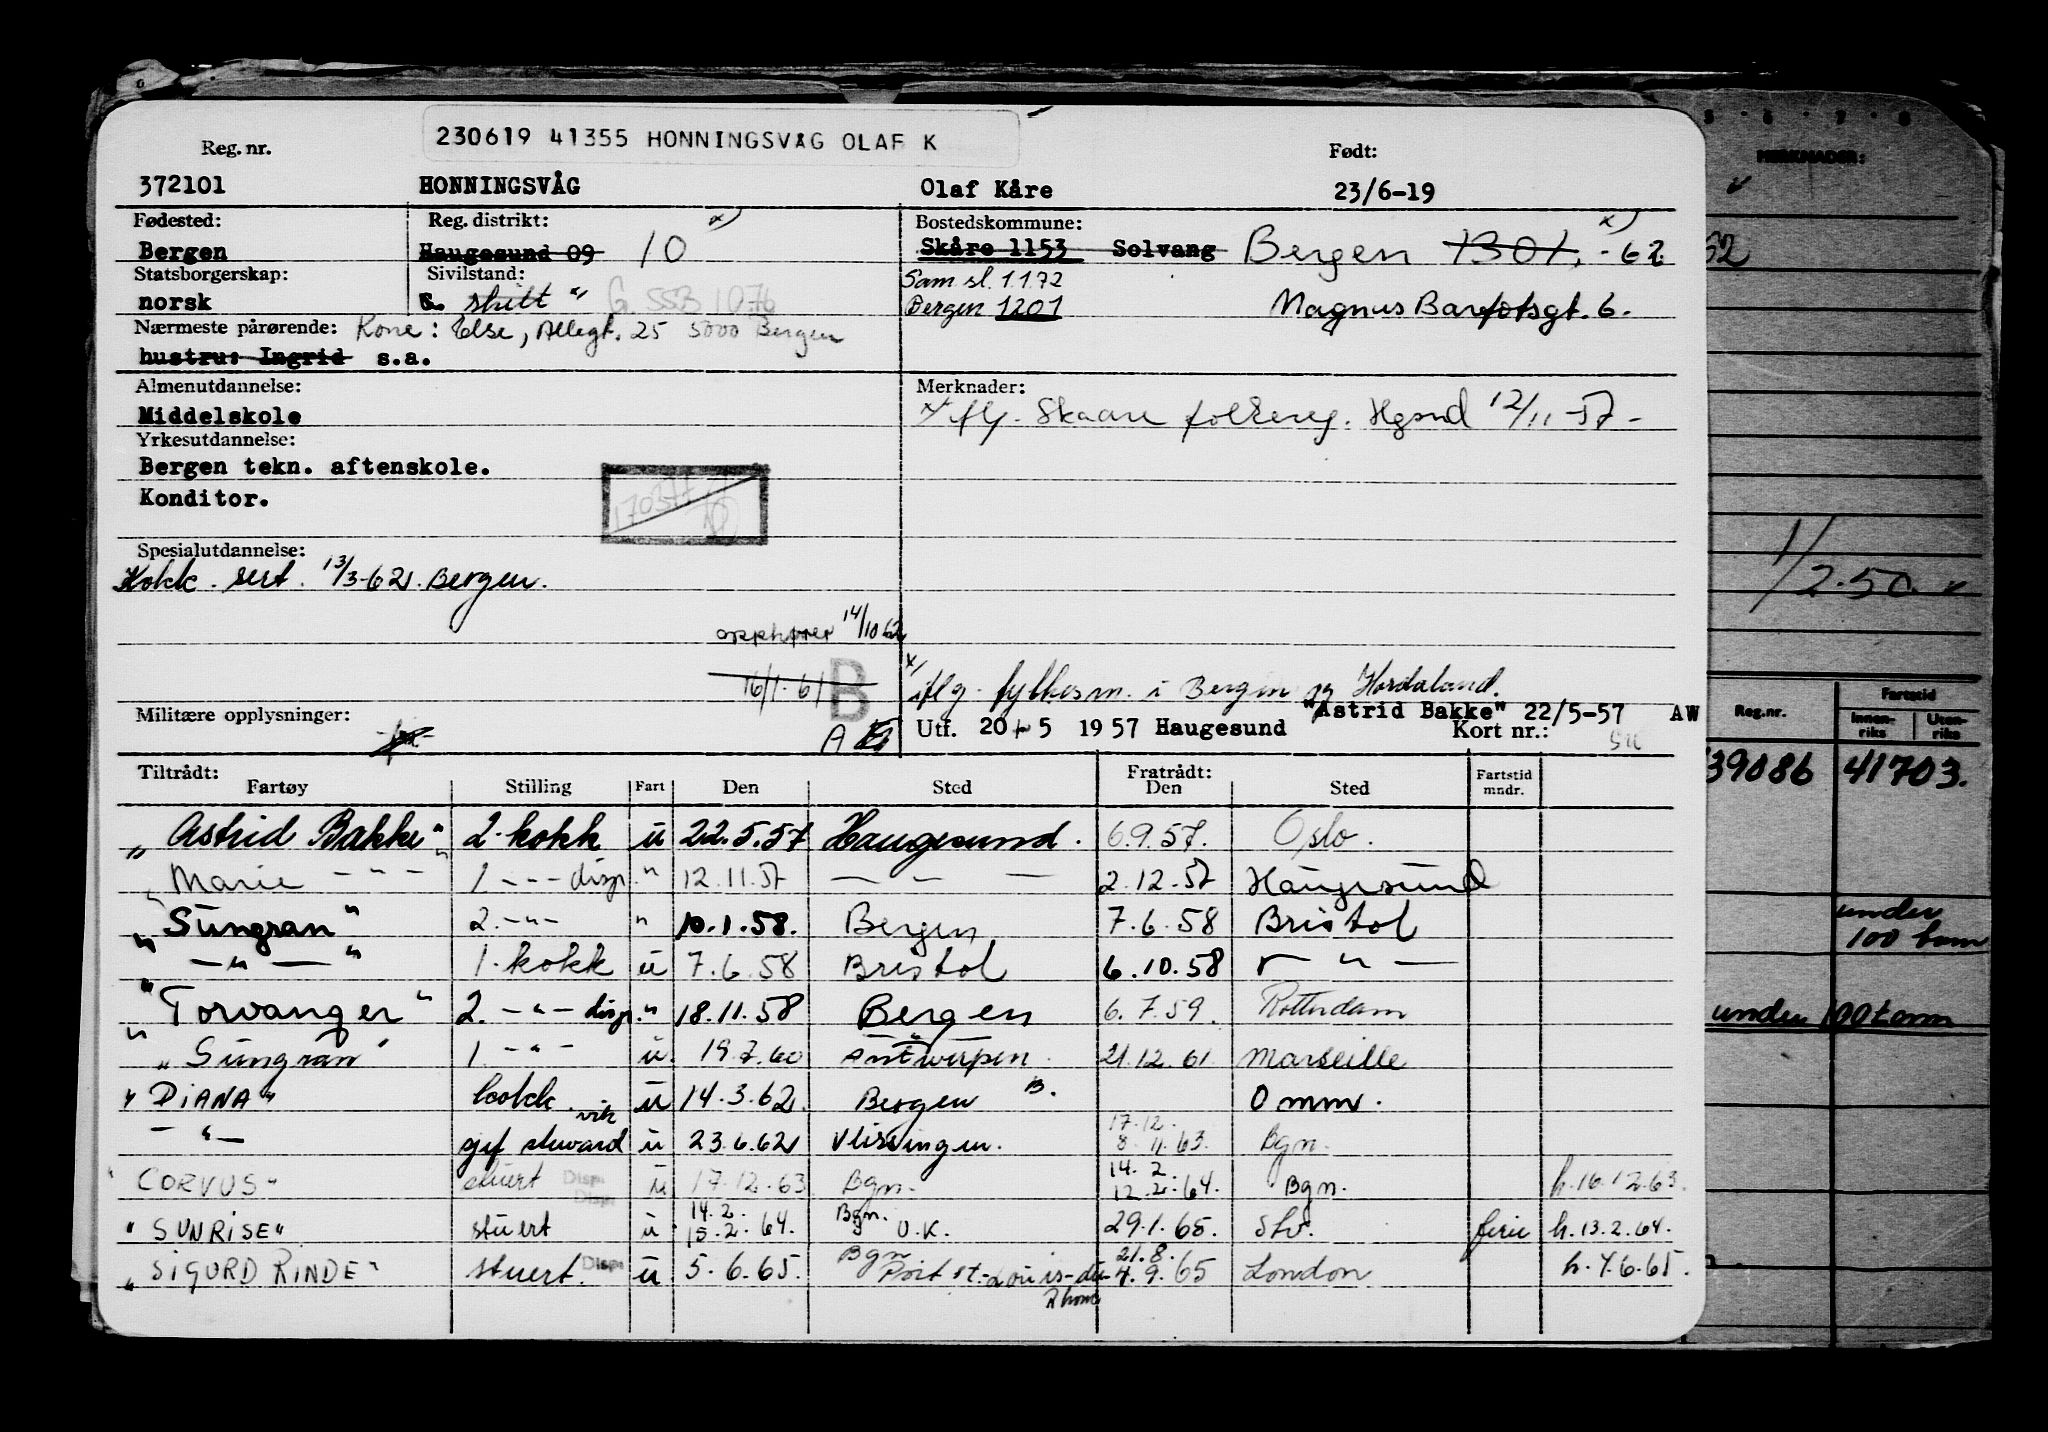 230619 41355 HONNINGSVÅG OLAF K
Reg. nr. Født:
372101 HONNINGSVÅG Olaf Kåre 23/6-19
Fødested: Reg. distrikt: x) Bostedskommune: x)
Bergen Haugesund 09 10 Skåre 1153 Solvang Bergen 1301. -62
Statsborgerskap: Sivilstand: Sam.sl. 1.1.72
norsk G. skilt G. 553 1076 Bergen 1201 Magnus Barfotsgt. 6.
Nærmeste pårørende: Kone: Else, Allegt. 25 5000 Bergen
hustru: Ingrid s.a.
Almenutdannelse: Merknader:
Middelskole x iflg. Skaare folkereg. Hgsnd 12/11-57-
Yrkesutdannelse:
Bergen tekn. aftenskole.
Konditor.
Spesialutdannelse:
Kokk. sert. 13/3-62. Bergen.
opphører 14/10 62
16/1-61 B x) iflg. fylkesm. i Bergen og Hordaland.
"Astrid Bakke" 22/5-57 AW
Militære opplysninger: A Utf. 20/5 1957 Haugesund Kort nr.:
Tiltrådt: Fratrådt:
Fartøy Stilling Fart Den Sted Den Sted Fartstid mndr.
"Astrid Bakke" 2. kokk u 22.5.57 Haugesund. 6.9.57. Oslo.
" Marie - - - 1 - - - disp. " 12.11.57 — — — 2.12.57 Haugesund
"Sungran" 2. -"- " 10.1.58. Bergen 7.6.58 Bristol
" — " — " 1. kokk u 7.6.58 Bristol 6.10.58 — " —
"Torvanger" 2. - " - disp. " 18.11.58 Bergen 6.7.59. Rotterdam
"Sungran" 1. - " - u. 19.7.60 Antwerpen 21.12.61 Marseille
"DIANA" kokk u 14.3.62. Bergen B. Omm.
- " - vik
gjf stuward u 23.6.62 Vlissingen. 17.12. 8.11.63. Bgn.
"CORVUS" stuert Disp. Disp. u 17.12.63 Bgn. 14.2 12.2.64. Bgn. h.16.12.63.
"SUNRISE" stuert u 14.2. 15.2.64. Bgn. U.K. 29.1.65. Stv. ferie h.13.2.64.
"SIGURD RINDE" stuert. Disp. u 5.6.65. Bgn Port st-Louis-du-Rhone 21.8. 4.9.65 London h.4.6.65.
MERKNADER:
1/2.50.
Reg.nr. Fartstid
Innenriks Utenriks
39086 41703.
under
100 tonn
under 100 tonn